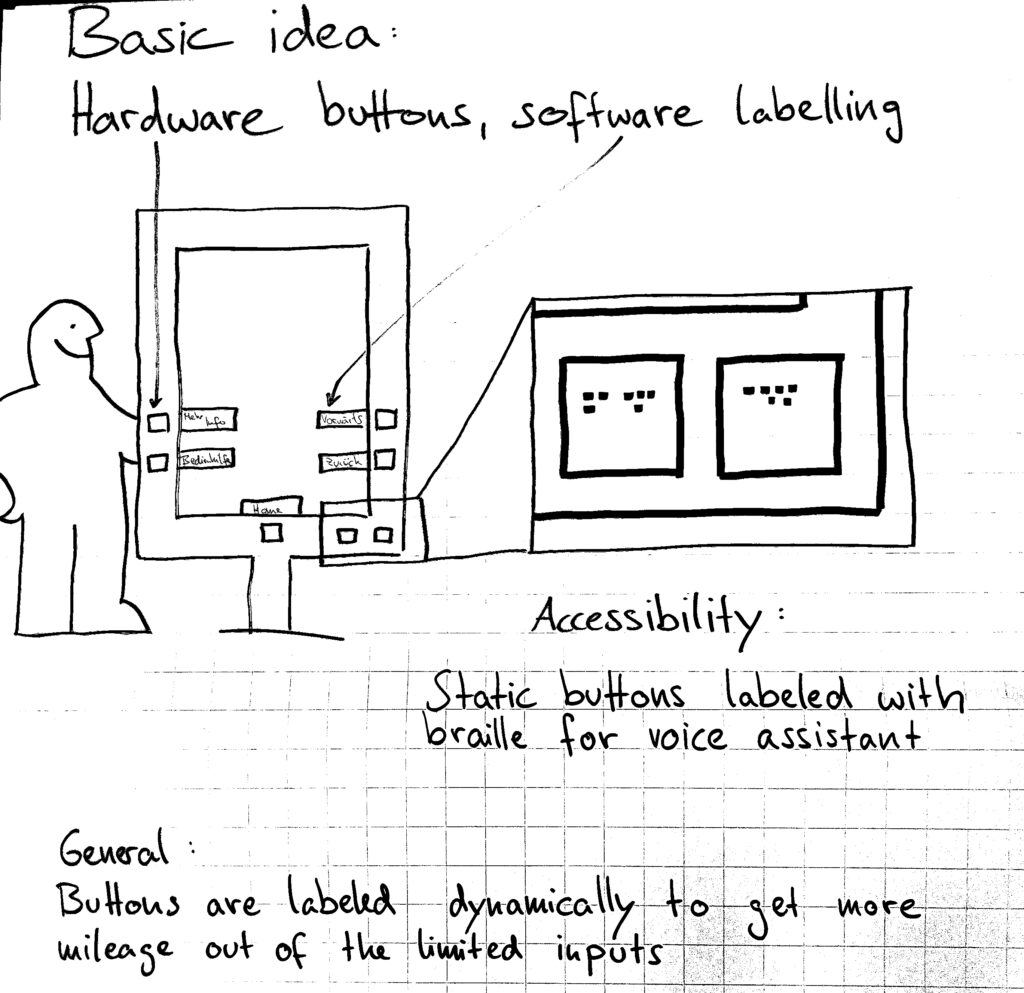 Basic idea:
Hardware buttons, software labelling
Mehr
Info
Vorwärts
Bedienhilfe
Zurück
Home
Accessibility:
Static buttons labeled with
braille for voice assistant
General:
Buttons are labeled dynamically to get more
mileage out of the limited inputs